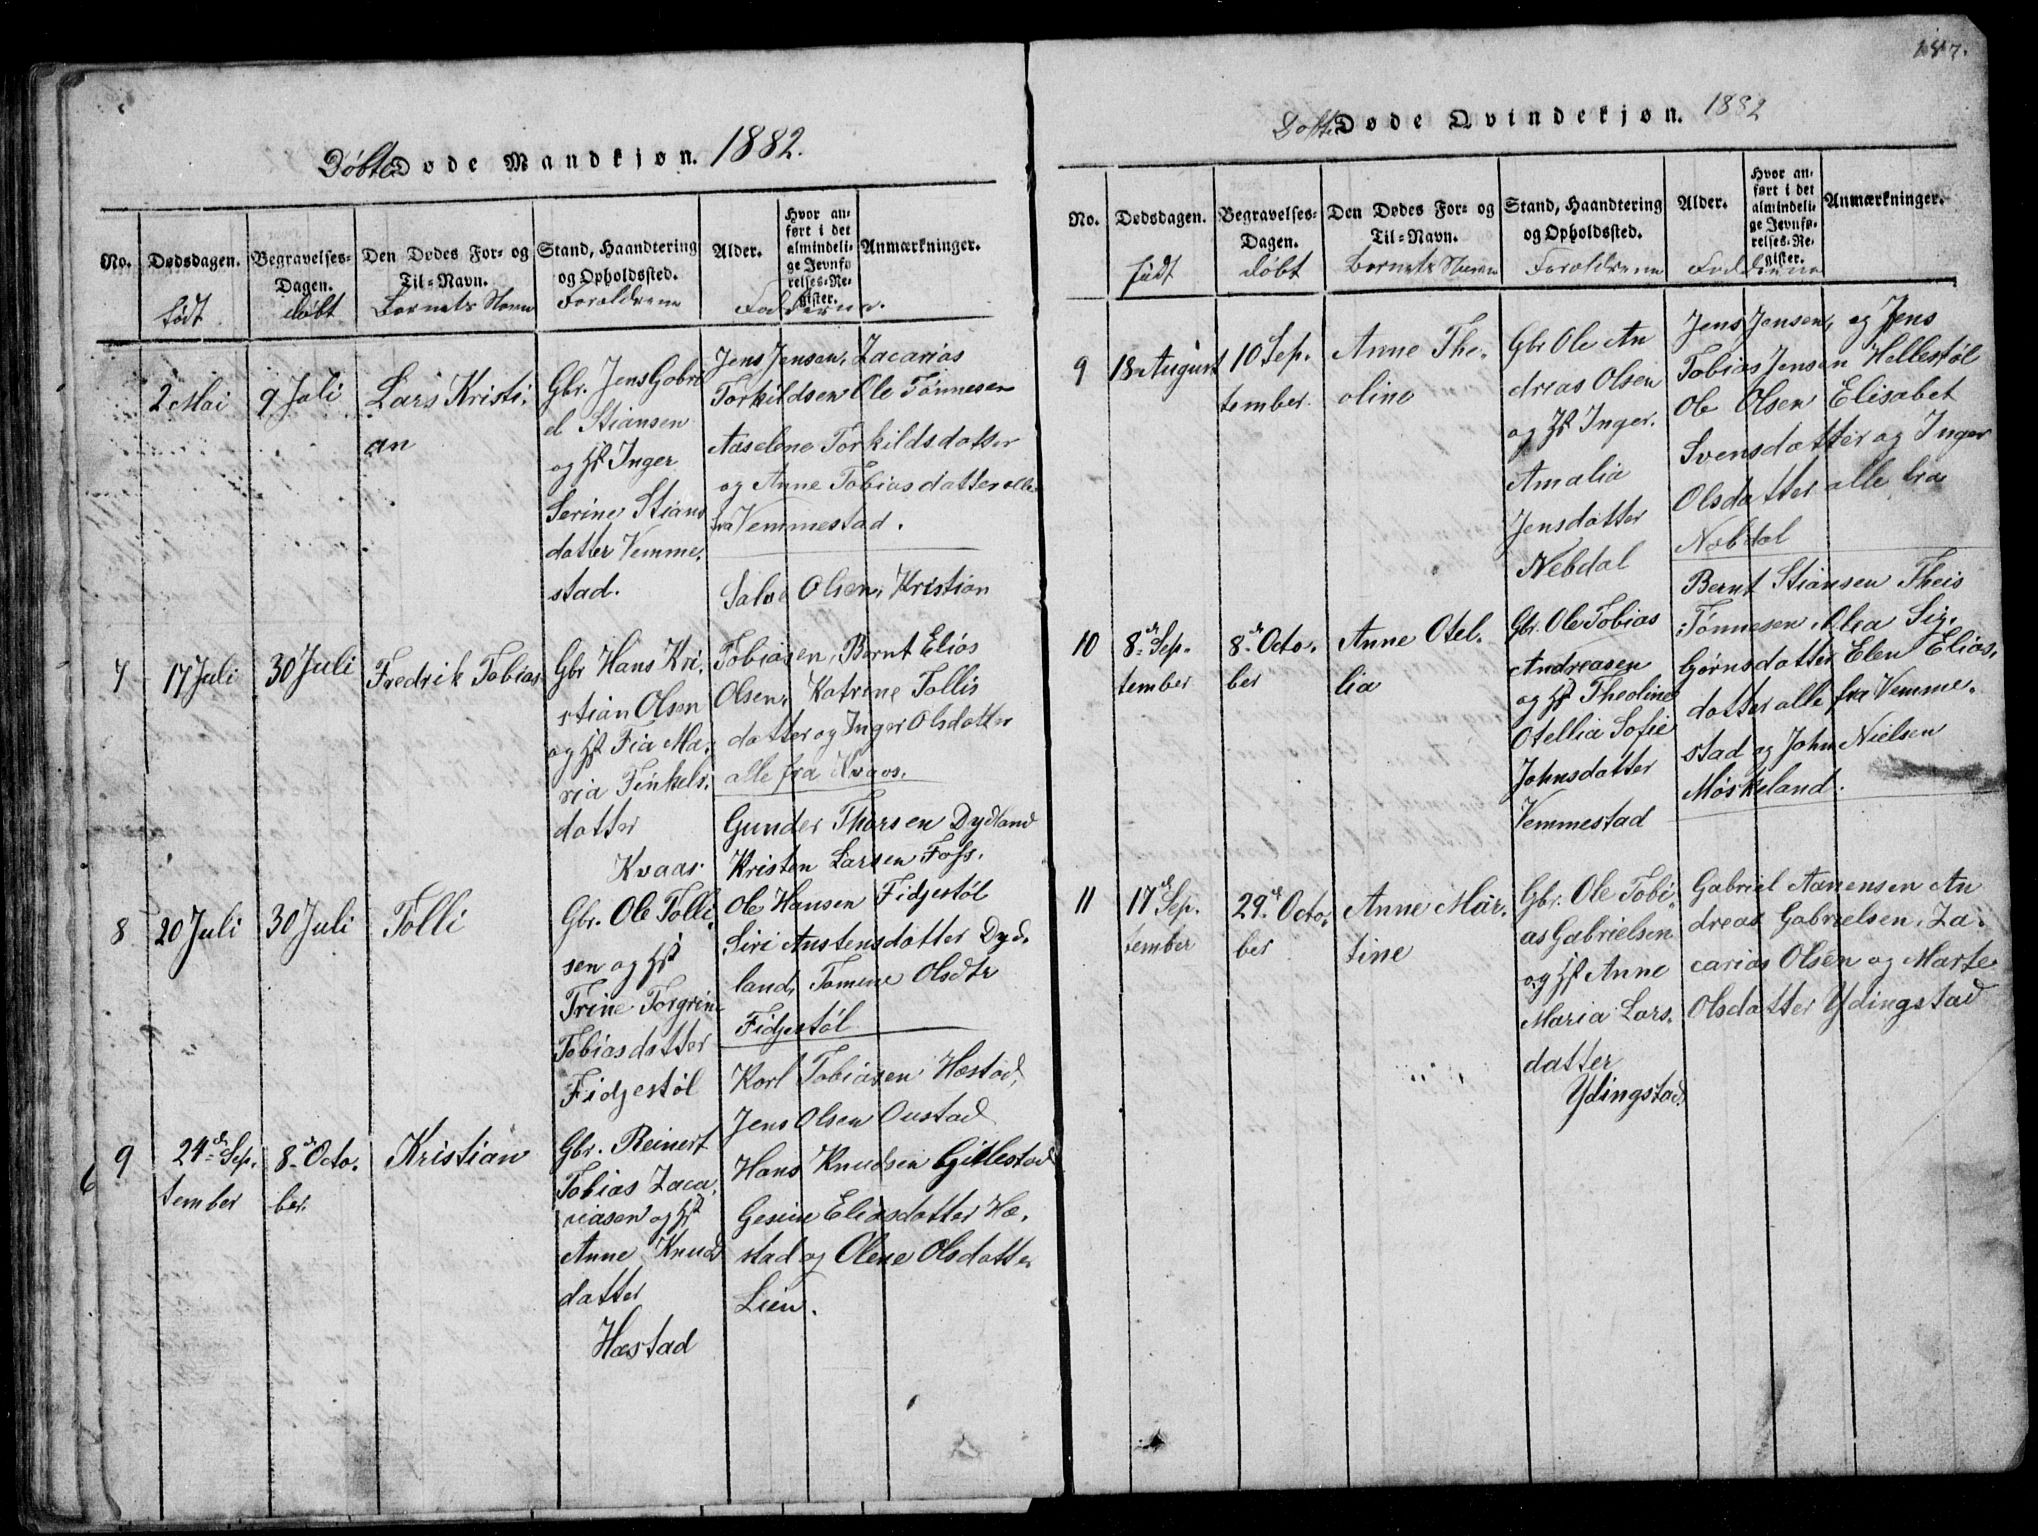 Døbte Døde Mandkjøn. 1882.
No.
Dødsdagen.
født
Begravelses-
Dagen.
døbt
Den Dødes For- og
Til-Navn.
Barnets Navn
Stand, Haandtering
og Opholdssted.
Foraldrene
Alder.
Hvor an-
ført i det
almindeli-
ge Jevnfø
relses-Re-
gister.
Anmærkninger.
Fadderne.
2 Mai
9 Juli
Lars Kristi-
an
Gbr. Jens Gabri
el Stiansen
og Hst Inger
Serine Stians
datter Vemme-
stad.
Jens Jensen, Zacarias
Torkildsen Ole Tønnesen
Aaselene Torkildsdatter
og Anne Tobiasdatter alle
fra Vemmestad.
7
17 Juli
30 Juli
Fredrik Tobias
Gbr Hans Kri-
stian Olsen
og Hst Fia Ma-
ria Tinkels-
datter
Kvaas
Salve Olsen, Kristian
Tobiasen, Bernt Elias
Olsen, Katrine Tollis
datter og Inger Olsdatter
alle fra Kvaas.
8
20 Juli
30 Juli
Tolli
Gbr. Ole Tolli-
sen og Hst
Trine Torgrine
Tobiasdatter
Fidjestøl
Gunder Thorsen Dydland
Kristen Larsen Foss.
Ole Hansen Fidjestøl
Siri Austensdatter Dyd-
land, Tomine Olsdtr
Fidjestøl
6
9
24de Sep-
tember
8de Octo-
ber.
Kristian
Gbr. Reinert
Tobias Zaca-
riasen og Hst
Anne Knuds
datter
Hæstad
Karl Tobiasen Hæstad,
Jens Olsen Oustad
Hans Knudsen Gitlestad
Gesine Eliasdatter Hæ-
stad og Olene Olsdatter
Lien.
187.
Døbte Døde Qvindekjøn. 1882
No.
Dødsdagen.
født
Begravelses-
Dagen.
døbt
Den Dødes For- og
Til-Navn.
Barnets Navn
Stand, Haandtering
og Opholdssted.
Foraldrene
Alder.
Hvor an-
ført i det
almindeli-
ge Jevnfø-
relses-Re-
gister.
Anmærkninger.
Fadderne
9
18 August
10 Sep-
tember
Anne The-
oline
Gbr Ole An
dreas Olsen
og Hst Inger
Amalia
Jensdatter
Nebdal
Jens Jensen, og Jens
Tobias Jensen Hellestøl
Ole Olsen Elisabet
Svensdatter og Inger
Olsdatter alle fra
Nebdal
10
8de Sep-
tember
8de Octo-
ber
Anne Otel-
lia
Gbr. Ole Tobias
Andreasen
og Hst Theoline
Otellia Sofie
Johnsdatter
Vemmestad
Bernt Stiansen Theis
Tønnesen Alea Sig-
bjørnsdatter Elen Elias-
datter alle fra Vemme-
stad og John Nielsen
Møskeland.
11
17de Sep-
tember
29de Octo-
ber
Anne Mar-
tine
Gbr. Ole Tobi-
as Gabrielsen
og Hst Anne
Maria Lars-
datter
Ydingstad
Gabriel Aanensen An
dreas Gabrielsen, Za-
carias Olsen og Marte
Olsdatter Ydingstad